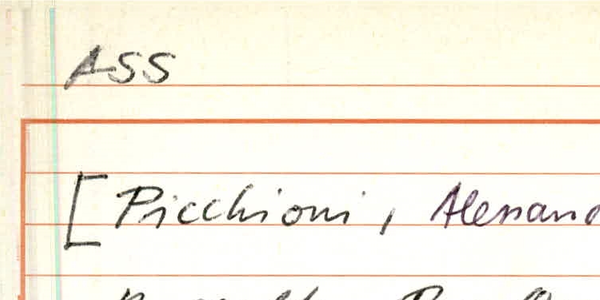 ASS
[Picchioni, Alessand